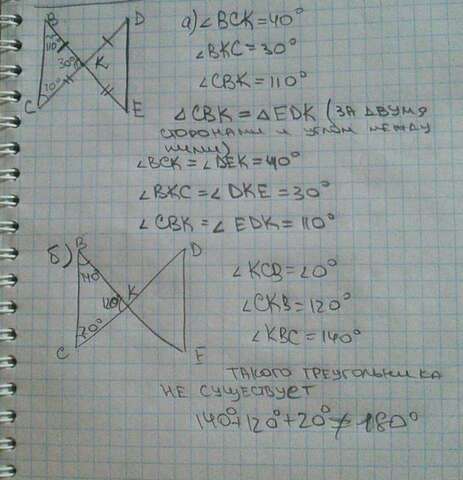 B D а) ∠BCK=40°
110°
30° K ∠BKC=30°
20°
C E ∠CBK=110°
∠CBK = △EDK (ЗА ДВУМЯ
СТОРОНАМИ И УГЛОМ МЕЖДУ
НИМИ)
∠BCK=∠DEK=40°
∠BKC=∠DKE=30°
∠CBK=∠EDK=110°
б) B D
140° ∠KCB=20°
120° K ∠CKB=120°
20° ∠KBC=140°
C E
ТАКОГО ТРЕУГОЛЬНИКА
НЕ СУЩЕСТВУЕТ
140°+120°+20°≠180°